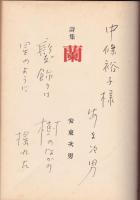 中條裕子様
安東次男
詩集
蘭
安東次男
髪飾りは
星のように
樹のなかの
揺れた